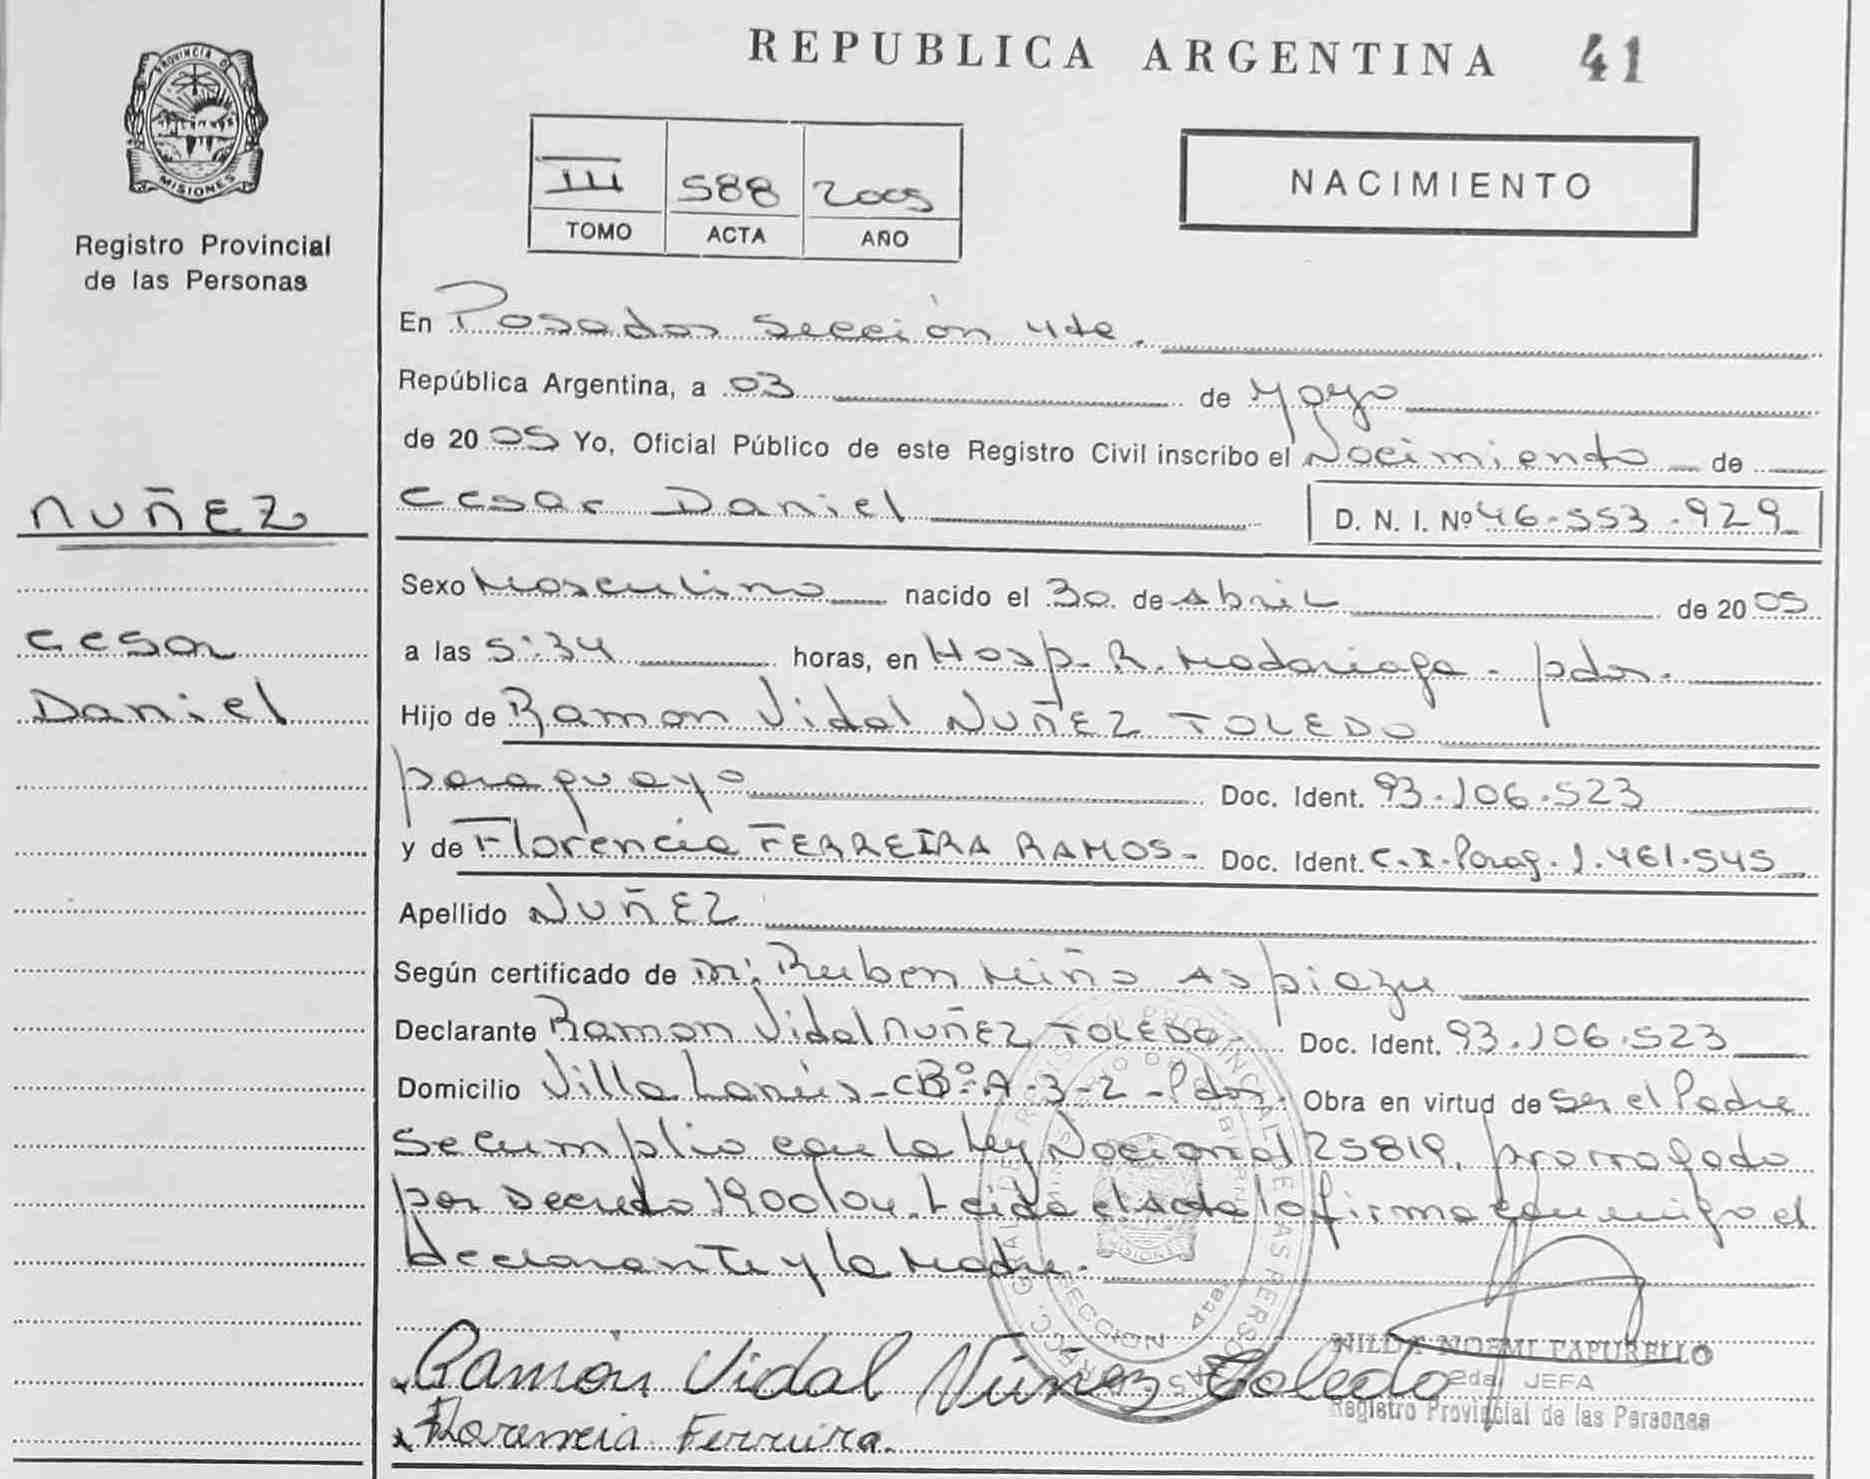 REPUBLICA ARGENTINA 41
PROVINCIA DE
MISIONES
Registro Provincial
de las Personas
III 588 2005
TOMO ACTA AÑO
NACIMIENTO
En Posadas Sección 4ta.
República Argentina, a 03 de Mayo
de 2005 Yo, Oficial Público de este Registro Civil inscribo el Nacimiento de
Cesar Daniel D. N. I. Nº 46-553-929
NUÑEZ
Cesar
Daniel
Sexo Masculino nacido el 30 de Abril de 2005
a las 5:34 horas, en Hosp. R. Madariaga - pdas.
Hijo de Ramon Vidal NUÑEZ TOLEDO
paraguayo Doc. Ident. 93.106.523
y de Florencia FERREIRA RAMOS- Doc. Ident. C.I. Parag. 1.461.545
Apellido NUÑEZ
Según certificado de Ruben Miño Aspiazu
Declarante Ramon Vidal NUÑEZ TOLEDO- Doc. Ident. 93.106.523
Domicilio Villa Lanús-CBº:A-3-2-Pdas. Obra en virtud de Ser el Padre
Se cumplio con la Ley Nacional 25819, prorrogado
por Decreto 1900/04. Leida el acta la firma conmigo el
declarante y la Madre.
SECCION 4ta
Ramón Vidal Núñez Toledo
Florencia Ferreira.
NILDA NOEMI PAPURELLO
2da. JEFA
Registro Provincial de las Personas